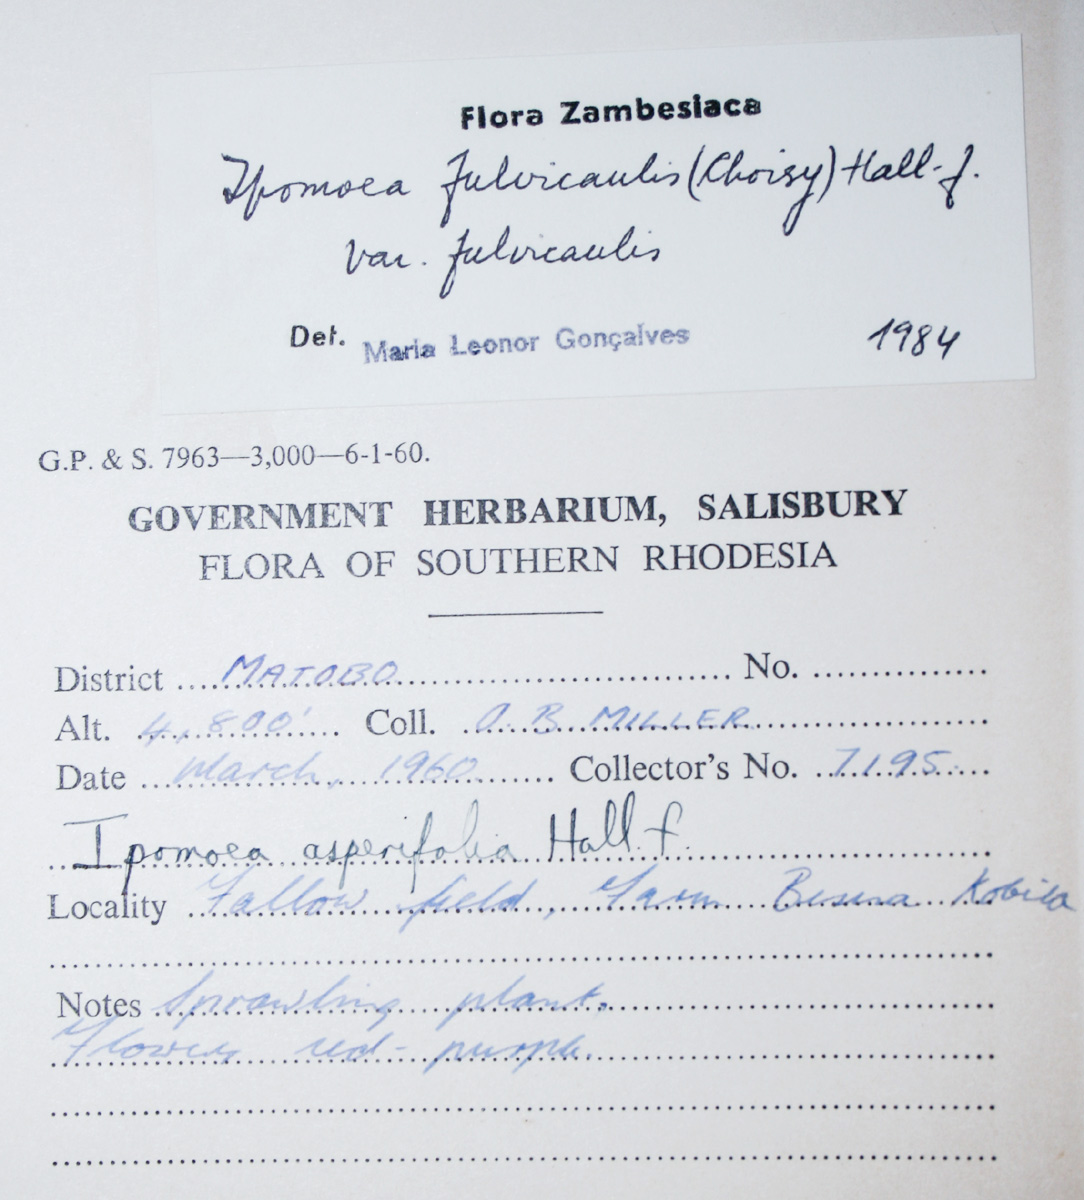 Flora Zambesiaca
Ipomoea fulvicaulis (Choisy) Hall. f.
var. fulvicaulis
Det. Maria Leonor Gonçalves 1984
G.P. & S. 7963—3,000—6-1-60.
GOVERNMENT HERBARIUM, SALISBURY
FLORA OF SOUTHERN RHODESIA
District MATOBO No.
Alt. 4,800' Coll. O. B. MILLER
Date March, 1960 Collector's No. 7195
Ipomoea asperifolia Hall. f.
Locality Fallow field, Farm Besna Kobila
Notes Sprawling plant.
Flowers red-purple.